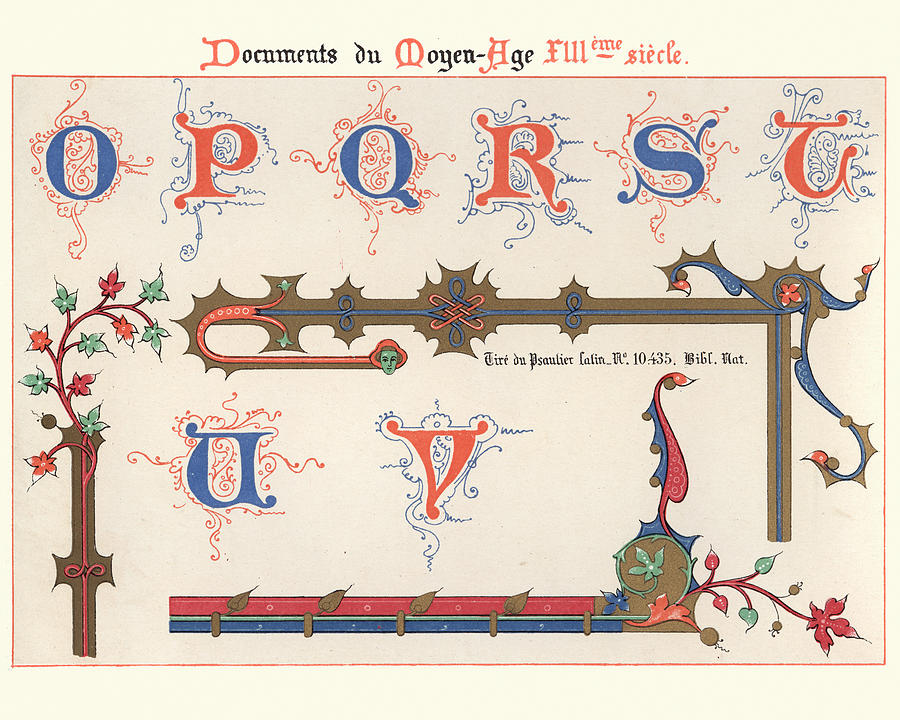 Documents du Moyen-Age XIIIème siècle.
O P Q R S T
Tiré du Psautier latin_No. 10435. Bibl. Nat.
U V